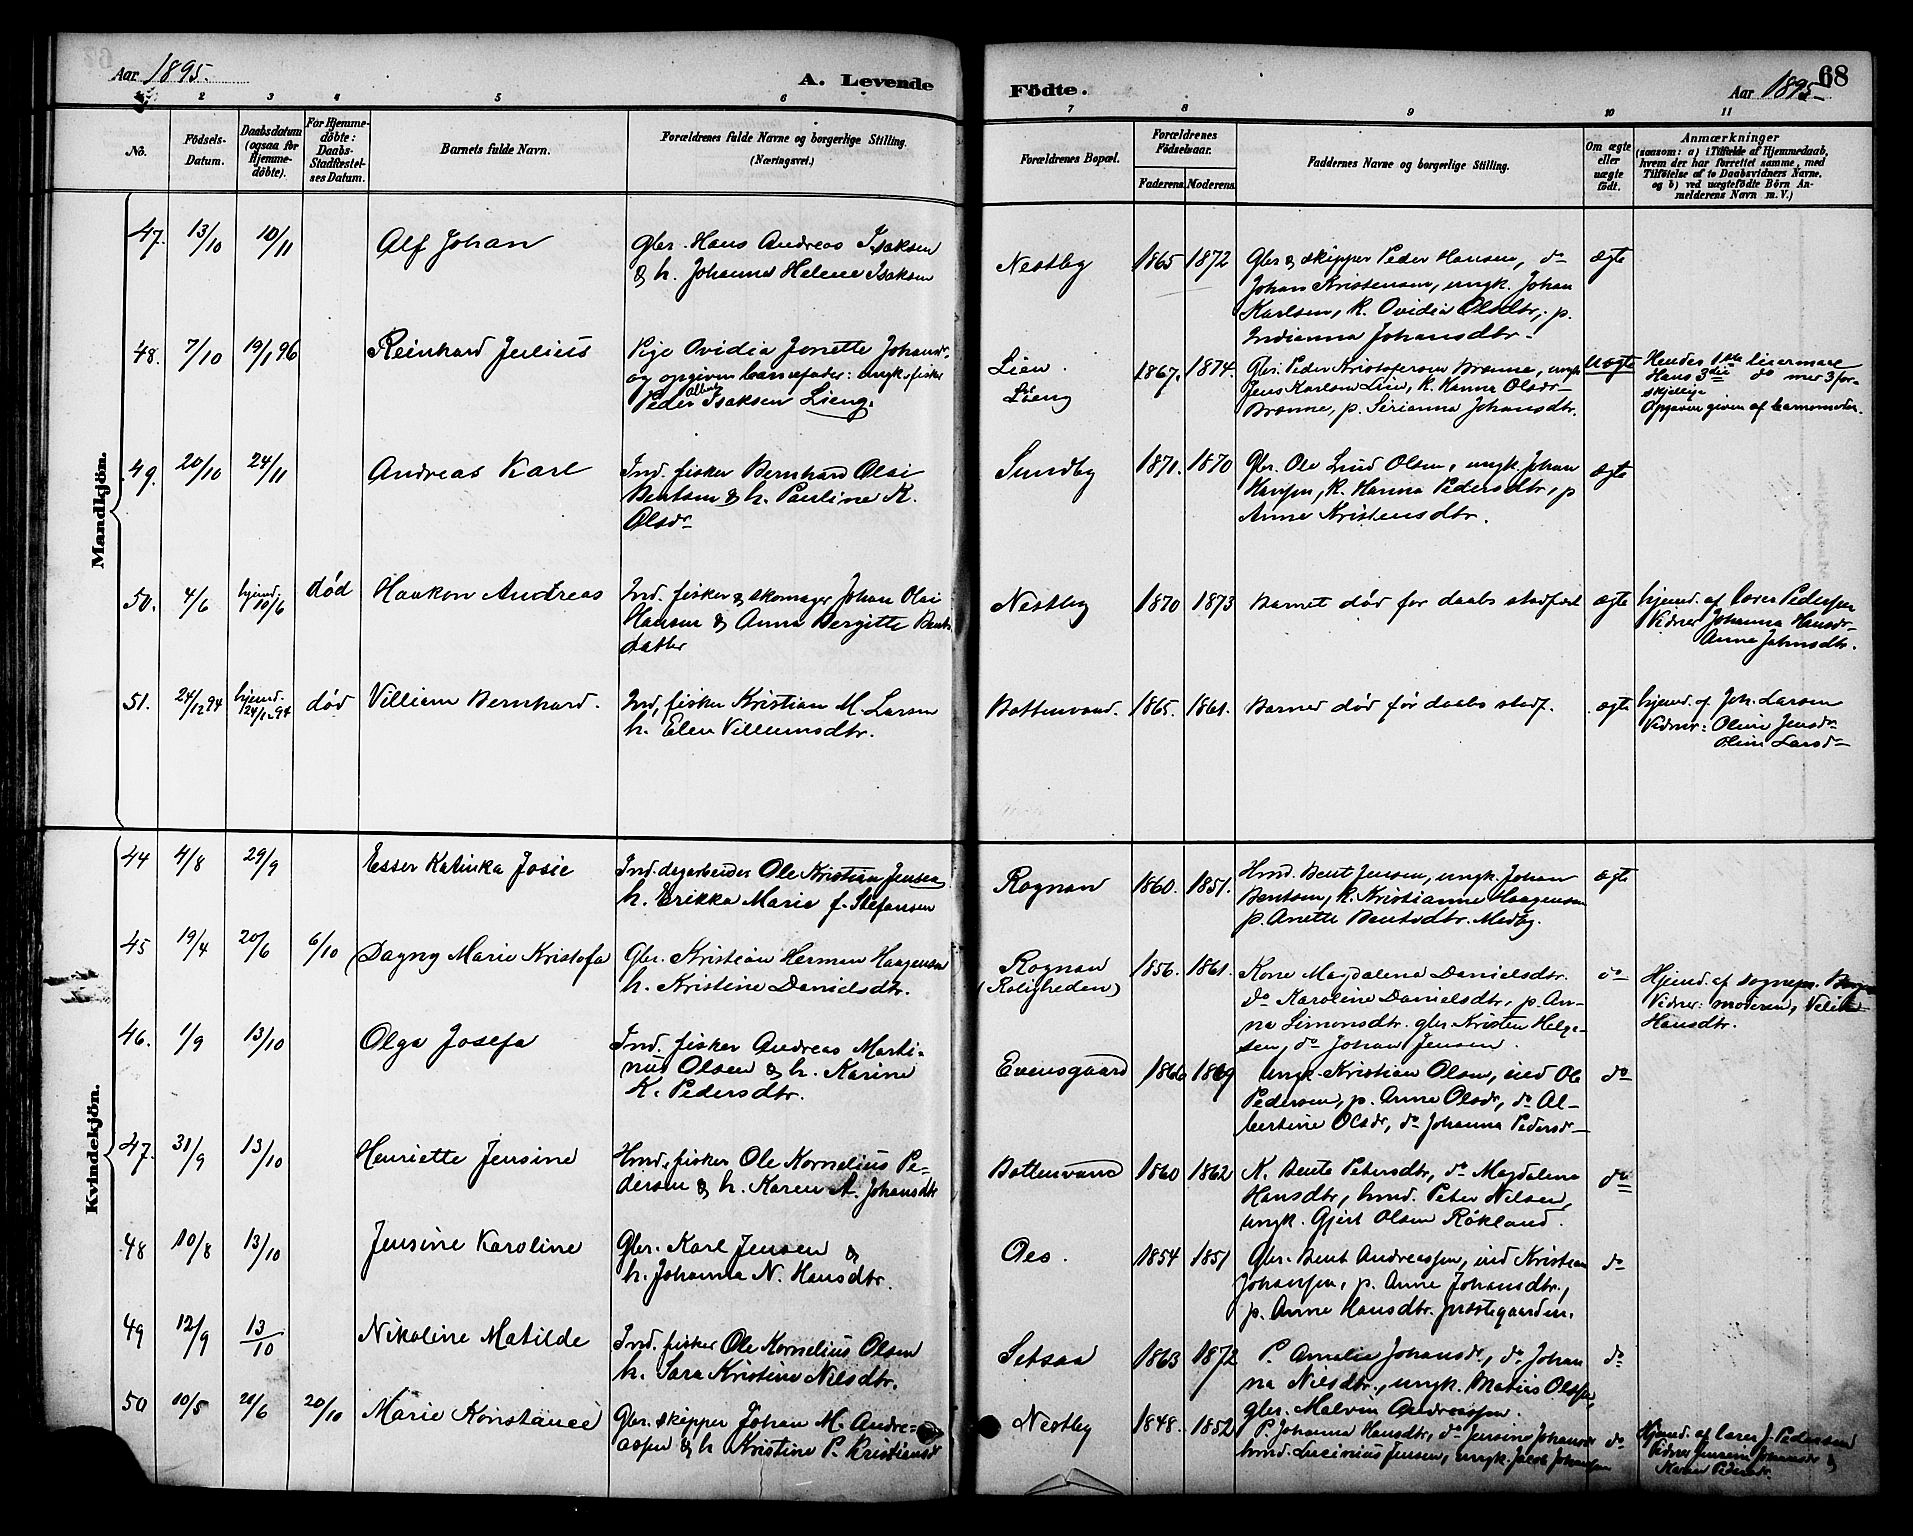 Aar 1895.
A. Levende
Födte.
Aar 1895
68
1
2
3
4
5
6
7
8
9
10
11
No.
Födsels-
Datum.
Daabsdatum
(ogsaa for
Hjemme-
döbte).
For Hjemme-
döbte:
Daabs-
Stadfæstel-
ses Datum.
Barnets fulde Navn.
Forældrenes fulde Navne og borgerlige Stilling.
(Næringsvei.)
Forældrenes Bopæl.
Forældrenes
Födselsaar.
Faderens.
Moderens.
Faddernes Navne og borgerlige Stilling.
Om ægte
eller
uægte
födt.
Anmærkninger
(saasom: a) i Tilfælde af Hjemmedaab,
hvem der har forrettet samme, med
Tilföielse af to Daabsvidners Navne,
og b) ved uægtefödte Börn An-
melderens Navn m. V.)
Mandkjön.
47. 13/10 10/11 Alf Johan
Gbr. Hans Andreas Isaksen
& h. Johanna Helene Isaksen
Nestby 1865 1872
Gbr & skipper Peder Hansen, do
Johan Kristensen, ungk. Johan
Karlsen, K. Ovidia Olsdtr, p.
Indianna Johansdtr.
ægte
48. 7/10 19/1 96 Reinhard Julius
Pige Ovidia Jonette Johansd.
og opgiven barnefader: ungk. fisker
Peder Albert Isaksen Lieng.
Lien.
Lieng
1867. 1874.
Gbr. Peder Kristofersen Brænne, ungk
Jens Karlsen Lien, K. Hanna Olsdr
Brænne, p. Sirianna Johansdtr.
Uægte
Hendes 1ste leiermaal
Hans 3die do med 3 for-
skjellige
Opgaven given af barnemoder.
49. 20/10 24/11 Andreas Karl
Ind. fisker Bernhard Olai
Bentsen & h. Pauline K.
Olsdr
Sundby 1871. 1870
Gbr. Ole Lund Olsen, ungk. Johan
Hansen, K. Hanna Pedersdtr, p
Anne Kristensdtr.
ægte
50. 4/6 hjemd. 10/6 død Haakon Andreas
Ind. fisker & skomager Johan Olai
Hansen & Anna Bergitte Bents
datter
Nestby 1870 1873
Barnet død før daabs stadfæst
ægte
hjemd. af lærer Pedersen
Vidner Johanna Hansdr
Anne Johnsdtr.
51. 24/12 94 hjemd. 24/12 94 død Villiam Bernhard.
Ind, fisker Kristian M. Larsen
h. Elen Villumsdtr.
Bottenvand. 1865. 1861.
Barned død før daabs stadf.
ægte
hjemd. af Joh. Larsen
Vidner: Oline Jensdr
Oline Larsdr
Kvindekjön.
44 4/8 29/9 Esser Katinka Josie
Ind. dagarbeider Ole Kristian Jensen
h. Erikka Marie f. Stefansen
Rognan 1860. 1851.
Hmd. Bent Jensen, ungk. Johan
Bentsen, K. Kristianne Haagensen
p. Anette Bentsdtr. Medby.
ægte
45 19/4 20/6 6/10 Dagny Marie Kristofa
Gbr. Kristian Herman Haagensen
h. Kristine Danielsdtr.
Rognan
(Roligheden)
1856. 1861.
Kone Magdalena Danielsdtr.
do Karoline Danielsdtr, p. An-
na Simonsdtr. gbr Kristen Helge-
sen, do Johan Jensen.
do
Hjemd. af sognepr.
Vidner: moderen,
Hansdtr.
46. 1/9 13/10 Olga Josefa
Ind. fisker Andreas Marti-
nus Olsen & h. Karine
K. Pedersdtr.
Evensgaard 1866 1869
Ungk. Kristian Olsen, ind Ole
Pedersen, p. Anne Olsdr, do Al-
bertine Olsdr, do Johanna Pedersdr
do
47. 31/9 13/10 Henriette Jensine
Hmd, fisker Ole Kornelius Pe-
dersen & h. Karen A. Johansdtr
Bottenvand 1860 1862
K. Bente Petersdtr, do Magdalena
Hansdtr, hmd. Peter Nilsen,
ungk. Gjert Olsen Røkland.
do
48 10/8 13/10 Jensine Karoline
Gbr. Karl Jensen &
h. Johanna N. Hansdtr.
Oes. 1854 1851
Gbr. Bent Andreassen, ind Kristian
Johansen, p. Anne Johansdtr,
p. Anne Hansdtr. præstegaarden.
do
49 12/9 13/10 Nikoline Matilde
Ind. fisker Ole Kornelius Olsen
h. Sara Kristine Nilsdtr.
Setsaa 1863 1872
P. Amelie Johansdr, do Johan
na Nilsdtr, ungk. Matius Olsen,
gbr. Malvin Andreassen.
do
50 10/5 21/6 20/10 Marie Konstance
Gbr. skipper Johan M. Andre-
assen & h Kristine P. Kristiansdr
Nestby 1848. 1852
P. Johanna Hansdtr, do Jensine Johansdr
hmd. Lucinius Jensen, ungk. Jacob Johansen
do
Hjemd. af lærer J. Pedersen
Vidner Jensine Johansdtr &
Maren Pedersdtr.